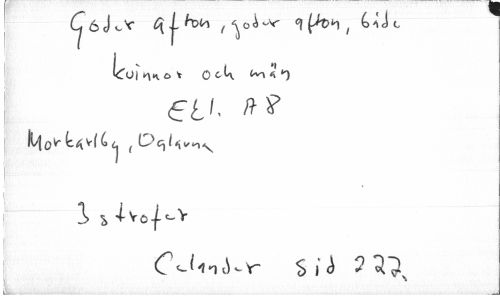 Goder afton, goder afton, både
kvinnor och män
Etl. A8
Morkarlby, Dalarna
3 strofer
Celander sid 227.